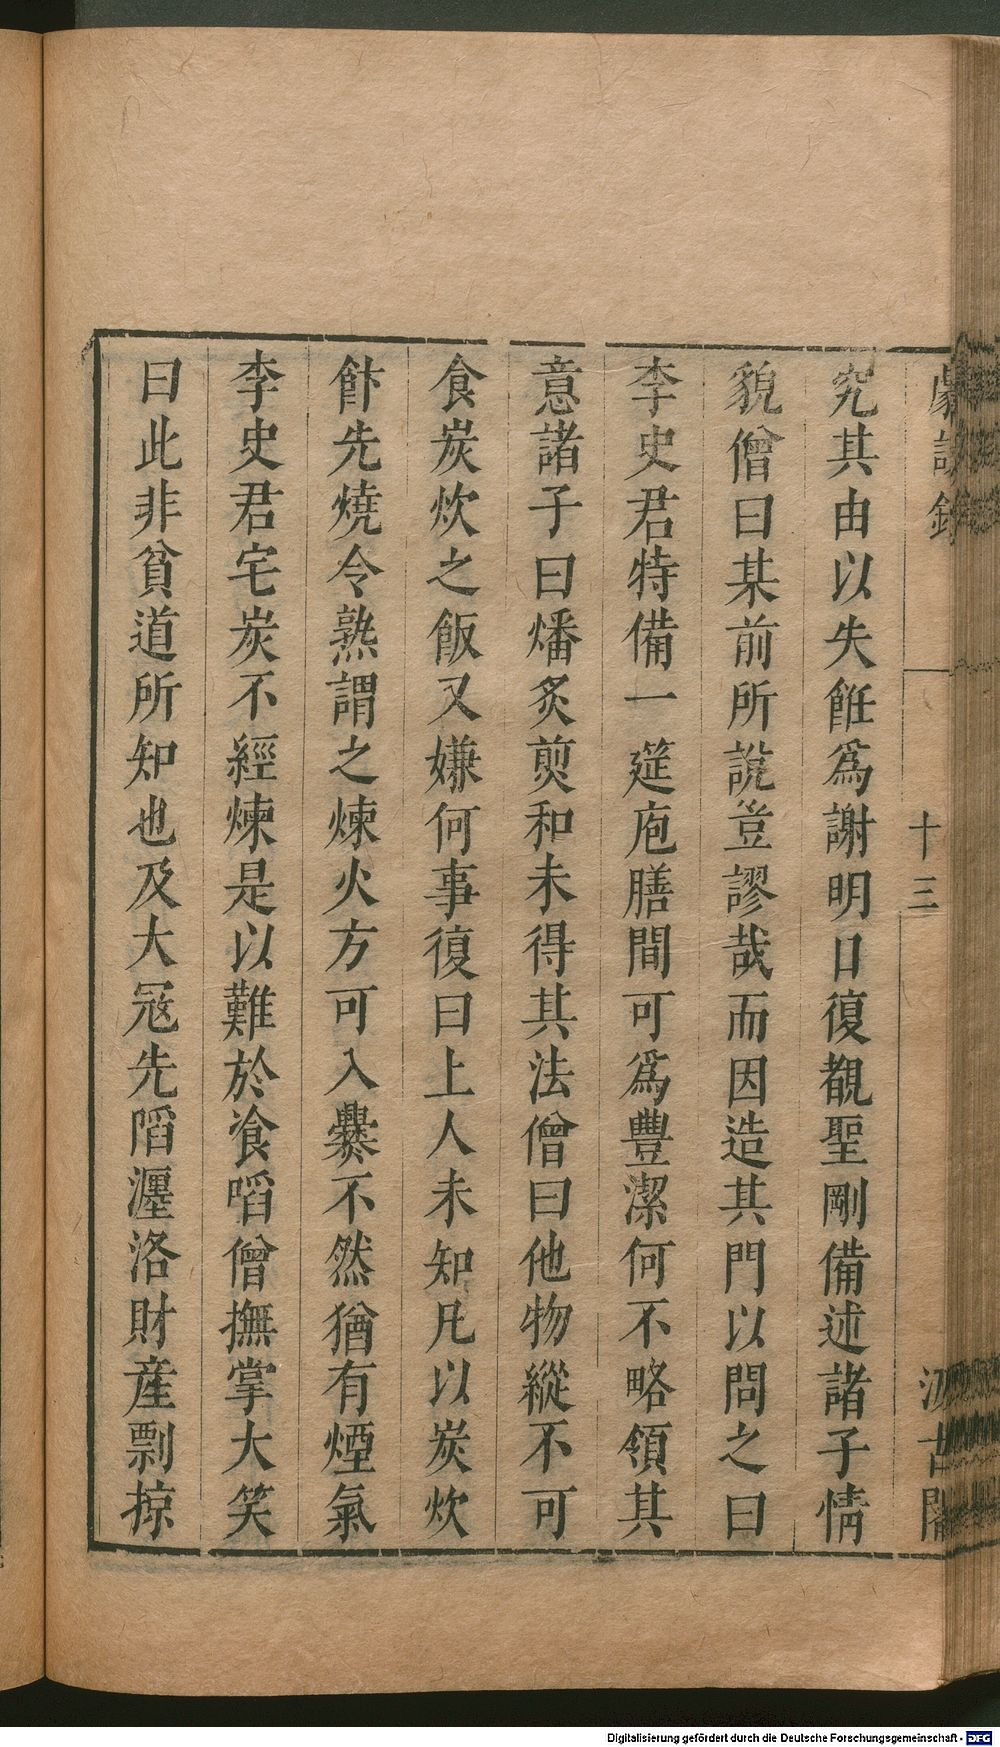 劇談錄
十三
汲古閣
究其由以失飪爲謝明日復覩聖剛備述諸子情
貌僧曰某前所說豈謬哉而因造其門以問之曰
李史君特備一筵庖膳間可爲豐潔何不略領其
意諸子曰燔炙煎和未得其法僧曰他物縱不可
食炭炊之飯又嫌何事復曰上人未知凡以炭炊
飰先燒令熟謂之煉火方可入爨不然猶有煙氣
李史君宅炭不經煉是以難於飡啗僧撫掌大笑
曰此非貧道所知也及大冦先䧟瀍洛財産剽掠
Digitalisierung gefördert durch die Deutsche Forschungsgemeinschaft - DFG